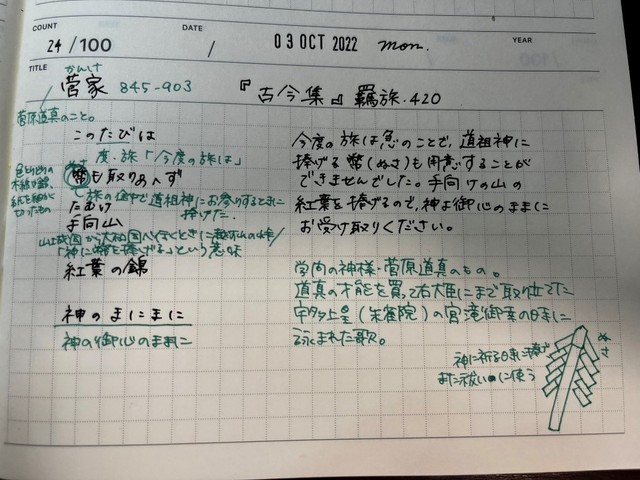 COUNT
24/100
DATE
/
03 OCT 2022 mon.
YEAR
TITLE
かんけ
菅家 845-903
『古今集』羇旅・420
菅原道真のこと。
このたびは
度・旅「今度の旅は」
ぬさ
幣も取りあへず
色とりどりの
木綿や錦、
紙を細かく
切ったもの
旅の途中で道祖神にお参りするときに
捧げた.
たむけ
手向山
山城国から大和国へ行くときに越す山の峠/
「神に幣を捧げる」という意味
紅葉の錦
神のまにまに
神の御心のままに
今度の旅は急のことで、道祖神に
捧げる幣(ぬさ)も用意することが
できませんでした。手向けの山の
紅葉を捧げるので、神よ御心のままに
お受け取りください。
学問の神様・菅原道真のもの。
道真の才能を買って右大臣にまで取り立てた
宇多上皇(朱雀院)の宮滝御幸の時に
詠まれた歌。
神に祈る時に捧げ
また祓いに使う
ぬさ